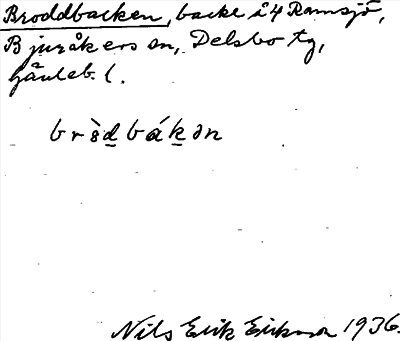 Broddbacken, backe å 4 Ramsjö,
Bjuråkers sn, Delsbo tg,
Gävleb. l.
bròd bákən
Nils Erik Erikson 1936.